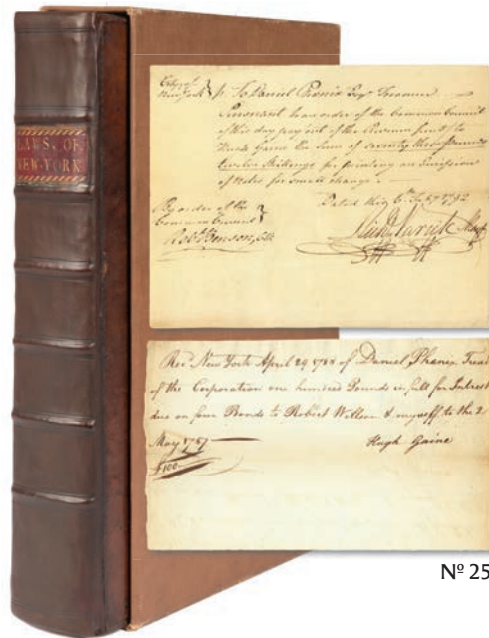 LAWS, OF
NEW-YORK
City of
New York
To Daniel Phenix Esqr. Treasurer
Pursuant to an order of the Common Council
of this day pay out of the Revenue fund to
Hugh Gaine the sum of seventy three pounds
twelve Shillings for printing an Emission
of Notes for small change.
Dated this 6th Feby 1792
By order of the
Common Council
Robt. Benson, Clk
Richd Varick Mayor
Recd. New York April 29 1788 of Daniel Phenix Treas
of the Corporation one hundred Pounds in full for Interest
due on four Bonds to Robert & myself to the 2
May 1787
£100
Hugh Gaine
Nº 25